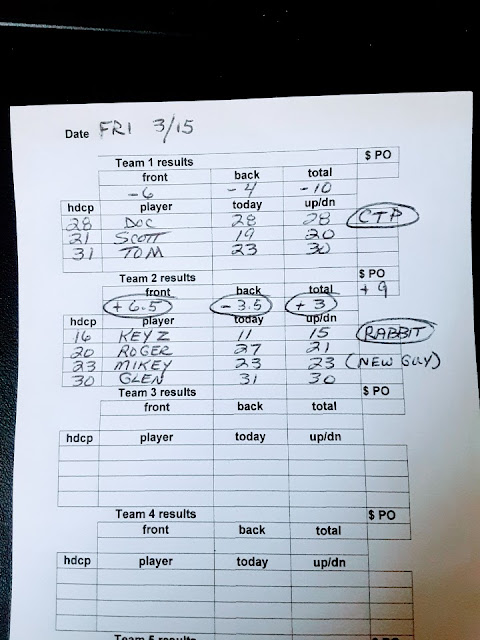 Date FRI 3/15
Team 1 results $ PO
front back total
-6 -4 -10
hdcp player today up/dn
28 DOC 28 28 CTP
21 SCOTT 19 20
31 TOM 23 30
Team 2 results $ PO
front back total + 9
+ 6.5 - 3.5 + 3
hdcp player today up/dn
16 KEYZ 11 15 RABBIT
20 ROGER 27 21
23 MIKEY 23 23 (NEW GUY)
30 GLEN 31 30
Team 3 results $ PO
front back total
hdcp player today up/dn
Team 4 results $ PO
front back total
hdcp player today up/dn
Team 5 results $ PO